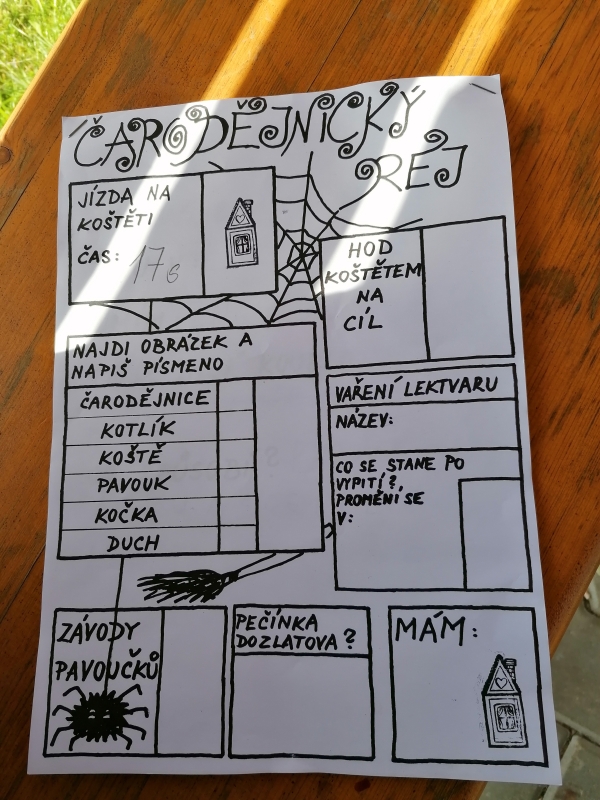 ČARODĚJNICKÝ
REJ
JÍZDA NA
KOŠTĚTI
ČAS: 17s
HOD
KOŠTĚTEM
NA
CÍL
NAJDI OBRÁZEK A
NAPIŠ PÍSMENO
ČARODĚJNICE
KOTLÍK
KOŠTĚ
PAVOUK
KOČKA
DUCH
VAŘENÍ LEKTVARU
NÁZEV:
CO SE STANE PO
VYPITÍ?,
PROMĚNÍ SE
V:
ZÁVODY
PAVOUČKŮ
PEČÍNKA
DOZLATOVA?
MÁM: